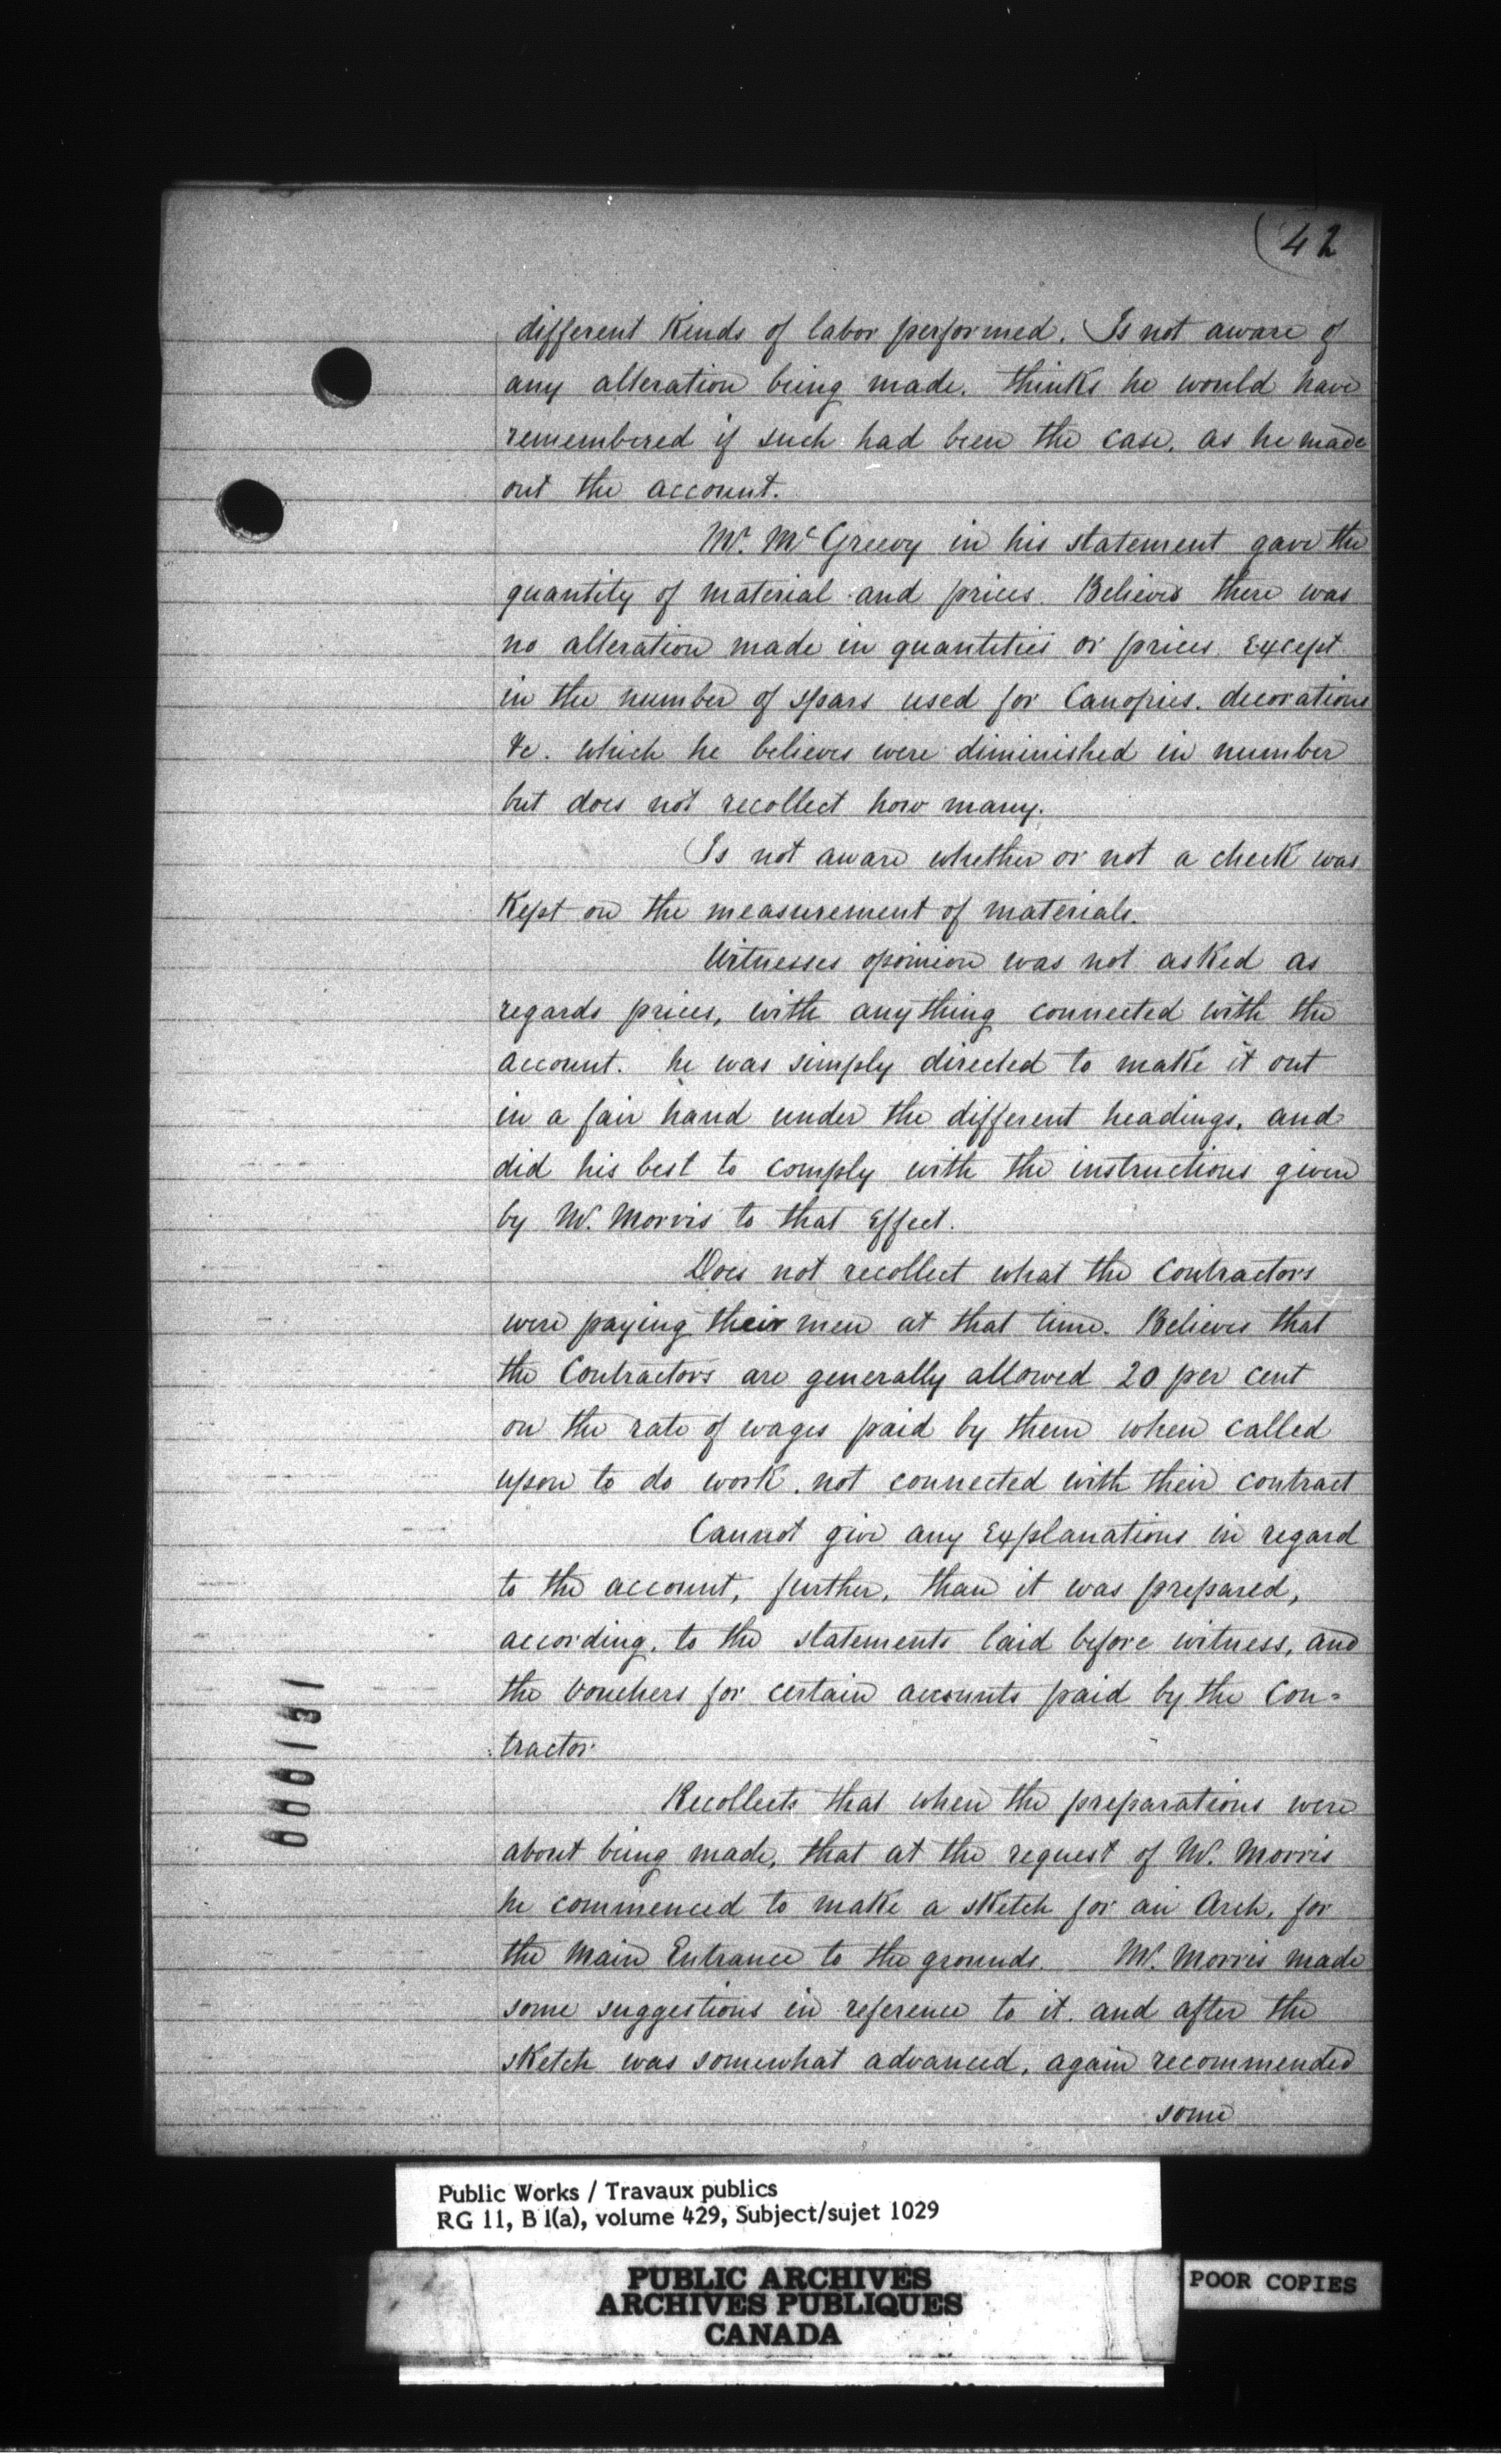 (42
different Kinds of labor performed. Is not aware of
any alteration being made. thinks he would have
remembered if such had been the case, as he made
out the account.
Mr. McGreevy in his statement gave the
quantity of material and prices. Believes there was
no alteration made in quantities or prices, Except
in the number of spars used for Canopies. decorations
&c. which he believes were diminished in number
but does not recollect how many.
Is not aware whether or not a check was
Kept on the measurement of materials.
Witnesses opinion was not asked as
regards prices, with anything connected with the
account. he was simply directed to make it out
in a fair hand under the different headings, and
did his best to comply with the instructions given
by Mr. Morris to that Effect.
Does not recollect what the Contractors
were paying their men at that time. Believes that
the Contractors are generally allowed 20 per cent
on the rate of wages paid by them when called
upon to do work, not connected with their contract
Cannot give any Explanations in regard
to the account, further, than it was prepared,
according, to the statements laid before witness, and
the Vouchers for certain accounts paid by the Con=
tractor.
Recollects that when the preparations were
about being made, that at the request of Mr. Morris
he commenced to make a sketch for an Arch, for
the Main Entrance to the grounds. Mr. Morris made
some suggestions in reference to it. and after the
sketch was somewhat advanced, again recommended
some
000131
Public Works / Travaux publics
RG 11, B 1(a), volume 429, Subject/sujet 1029
PUBLIC ARCHIVES
ARCHIVES PUBLIQUES
CANADA
POOR COPIES